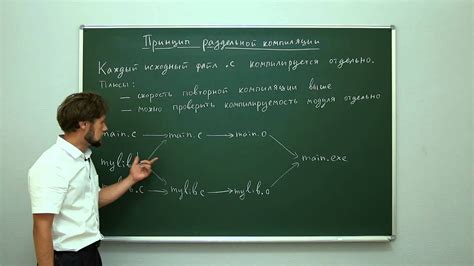 Принцип раздельной компиляции
Каждый исходный файл .c компилируется отдельно.
Плюсы:
— скорость повторной компиляции выше
— можно проверить компилируемость модуля отдельно
main.c → main.c → main.o
mylib. → main.exe
.c → mylib.c → mylib.o